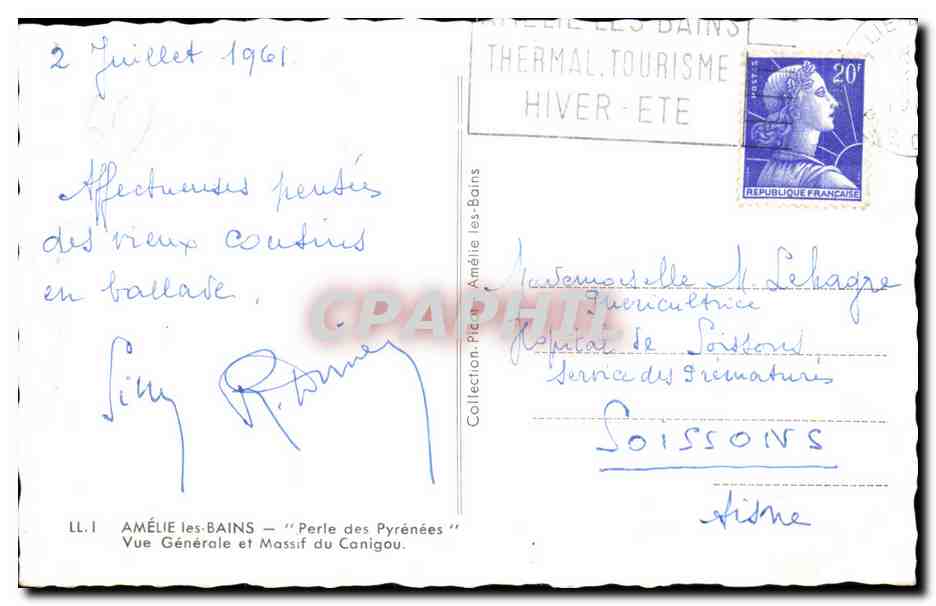 2 Juillet 1961.
Affectueuses pensées
des vieux cousins
en ballade.
AMÉLIE LES BAINS
THERMAL.TOURISME
HIVER-ETE
POSTES
20F
REPUBLIQUE FRANÇAISE
Collection Picot Amélie les-Bains
Mademoiselle M. Lehagre
Puéricultrice
Hopital de Soissons
Service des Prématurés
SOISSONS
Aisne
CPAPHIL
LL.1 AMÉLIE les-BAINS — "Perle des Pyrénées"
Vue Générale et Massif du Canigou.